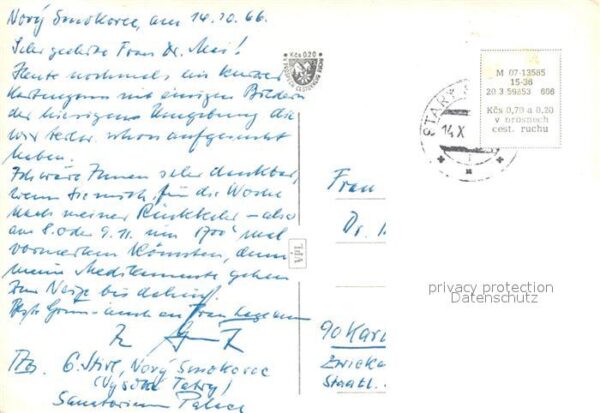 Nový Smokovec, am 14.10.66.
Sehr geehrte Frau Dr. Mai!
Heute nochmals ein kurzer
Kartengruss mit einigen Bildern
der hiesigen Umgebung die
wir leider schon aufgesucht
haben.
Ich wäre Ihnen sehr dankbar,
wenn Sie mich für die Woche
nach meiner Rückkehr – also
am 8. oder 9. 11. um 17.00 mal
vormerken könnten, denn
meine Medikamente gehen
zur Neige bis dahin.
Grüss auch an Frau
Tbs. G. Nový Smokovec
(Vysoké Tatry)
Sanatorium Palace
Kčs 0,20
M 07-13585
15-36
20 3 59853 606
Kčs 0,70 a 0,20
v prospěch
cest. ruchu
STARÝ
14.X
VPL
Frau
Dr.
privacy protection
Datenschutz
90 Karl
Zwicka
Staatl.